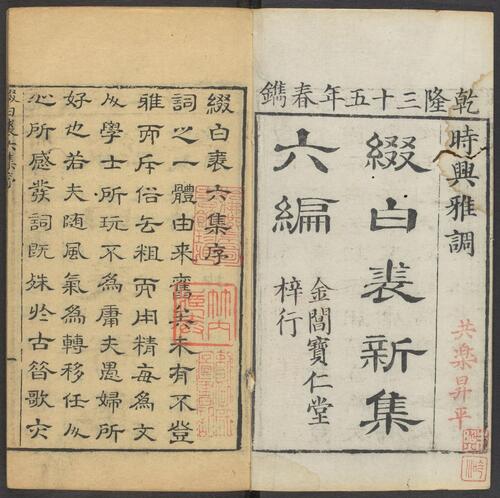 乾隆三十五年春鐫
時興雅調
綴白裘新集
六編
金閶寶仁堂
梓行
共樂昇平
綴白裘六集序
詞之一體由來舊矣未有不登
雅而斥俗去粗而用精每為文
人學士所玩不為庸夫愚婦所
好也若夫隨風氣為轉移任人
心所感發詞既殊於古昔歌亦
綴白裘六集序